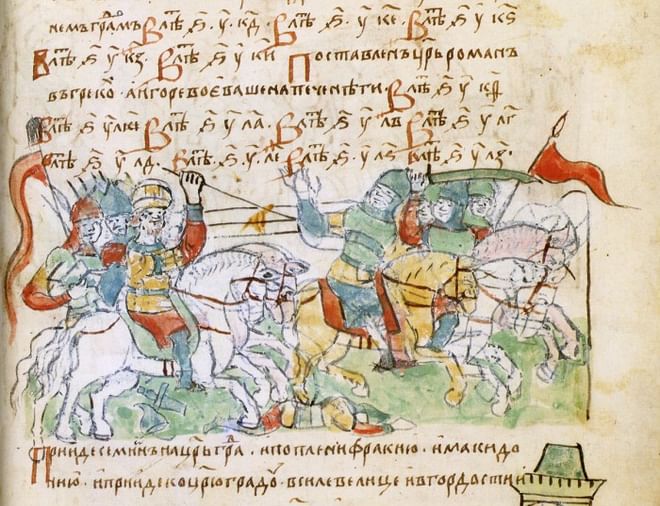 В лѣⷮ ҂ѕ҃ у҃ кд҃ . В лѣⷮ ҂ѕ҃ у҃ ке҃ . В лѣⷮ ҂ѕ҃ у҃ кѕ҃
В лѣⷮ ҂ѕ҃ у҃ кз҃ . В лѣⷮ ҂ѕ҃ у҃ ки҃ Поставленъ цр҃ь романъ
въ грекоⷯ . а игоре воеваше на печенѣги . В лѣⷮ ҂ѕ҃ у҃
В лѣⷮ ҂ѕ҃ у҃ ла҃ . В лѣⷮ ҂ѕ҃ у҃ лв҃ . В лѣⷮ ҂ѕ҃ у҃ лг҃
В лѣⷮ ҂ѕ҃ у҃ лд҃ . В лѣⷮ ҂ѕ҃ у҃ ле҃ В лѣⷮ ҂ѕ҃ у҃ лѕ҃ В лѣⷮ ҂ѕ҃ у҃ лз҃ .
Прииде семиѡнъ на цр҃ьграⷣ . и поплени фракию . и макидо
нию . и прииде ко цр҃юградоⷹ . в силе велице и в гордости